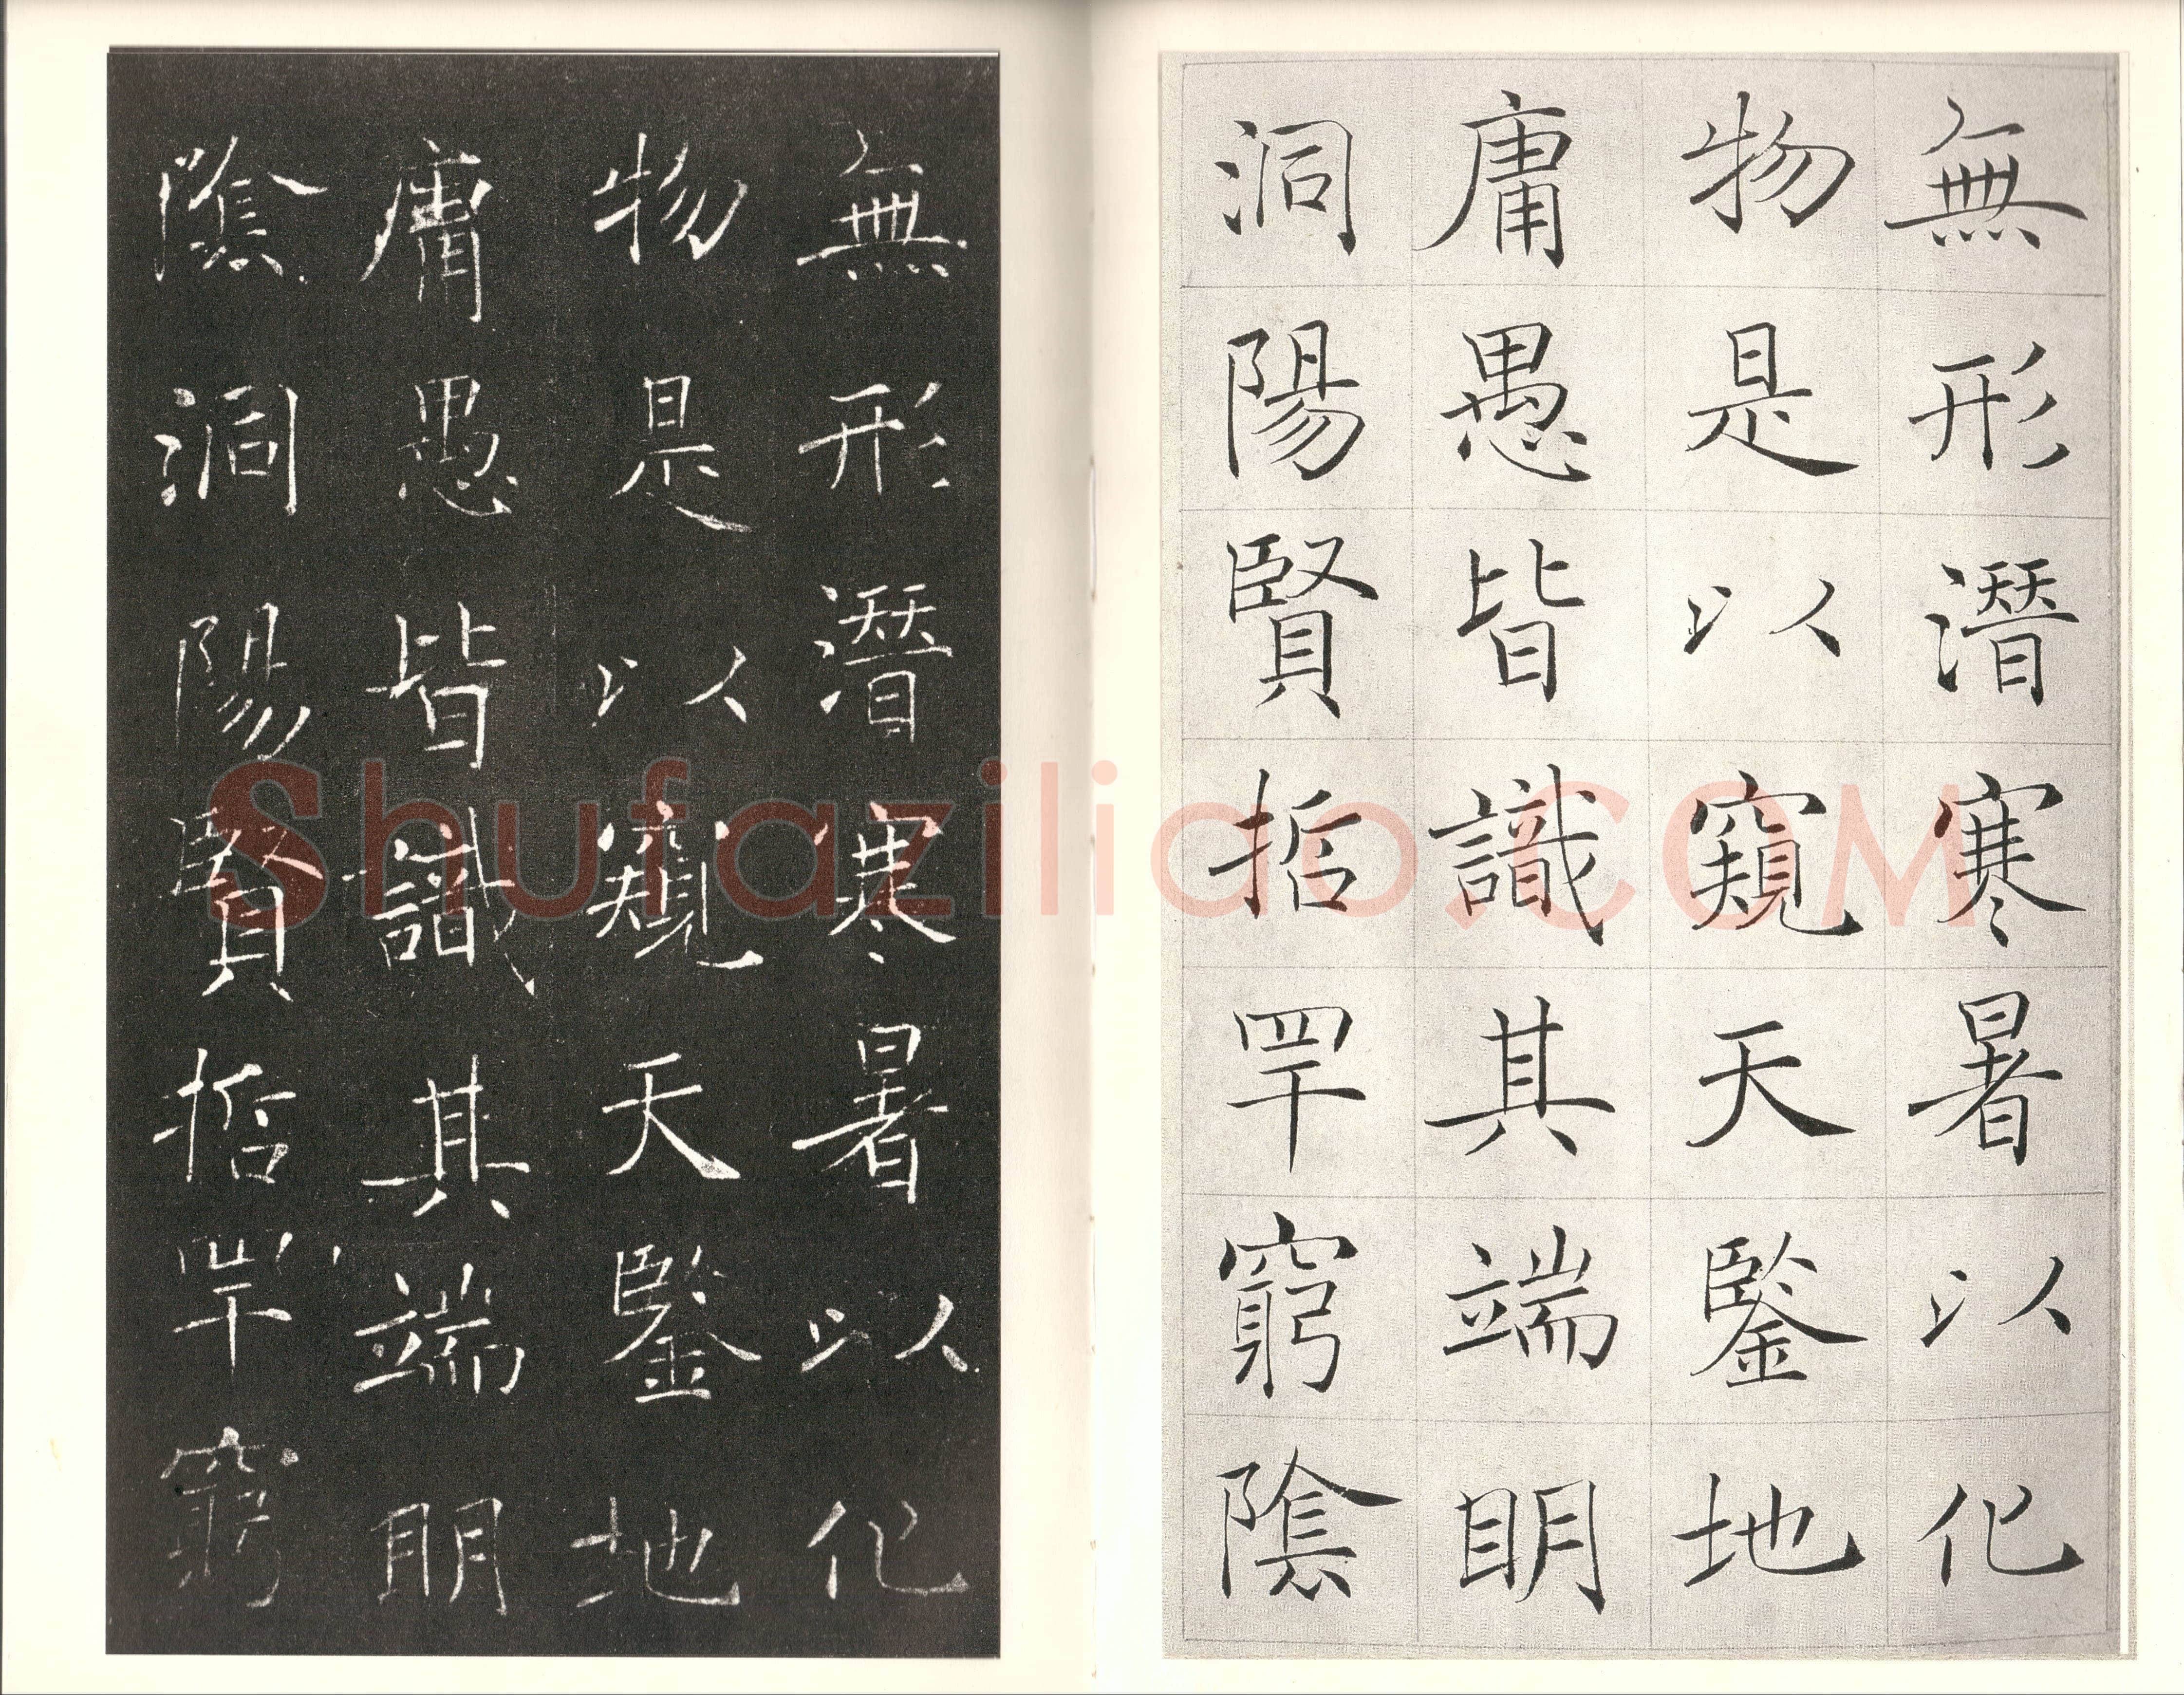 無形潛寒暑以化
物是以窺天鑒地
庸愚皆識其端明
洞陽賢哲罕窮陰
無形潛寒暑以化
物是以窺天鑒地
庸愚皆識其端明
陰洞陽賢哲罕窮
Shufaziliao.COM